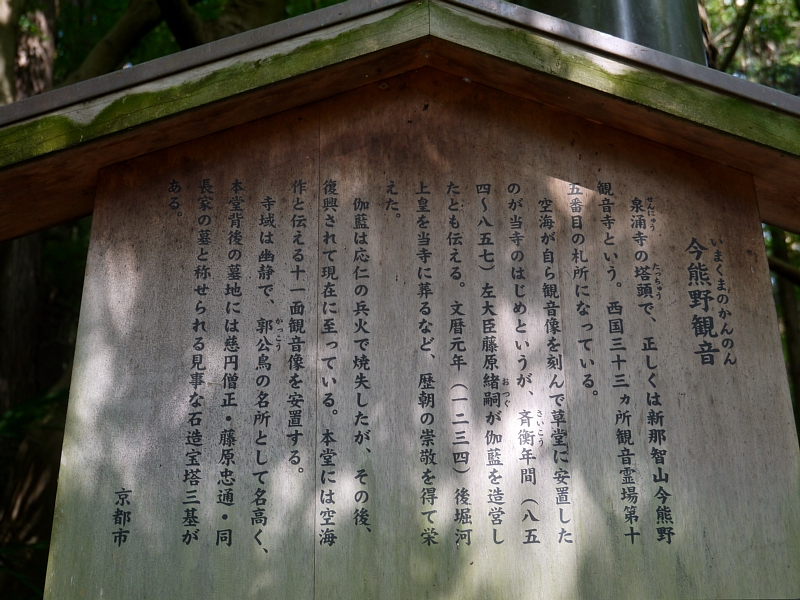 いまくまのかんのん
今熊野観音
せんにゅう たっちゅう
泉涌寺の塔頭で、正しくは新那智山今熊野
観音寺という。西国三十三ヵ所観音霊場第十
五番目の札所になっている。
空海が自ら観音像を刻んで草堂に安置した
さいこう
のが当寺のはじめというが、斉衡年間（八五
おつぐ
四〜八五七）左大臣藤原緒嗣が伽藍を造営し
たとも伝える。文暦元年（一二三四）後堀河
上皇を当寺に葬るなど、歴朝の崇敬を得て栄
えた。
伽藍は応仁の兵火で焼失したが、その後、
復興されて現在に至っている。本堂には空海
作と伝える十一面観音像を安置する。
かっこう
寺域は幽静で、郭公鳥の名所として名高く、
本堂背後の墓地には慈円僧正・藤原忠通・同
長家の墓と称せられる見事な石造宝塔三基が
ある。
京都市